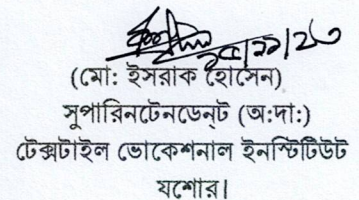 (মো: ইসরাক হোসেন)
সুপারিনটেনডেন্ট (অ:দা:)
টেক্সটাইল ভোকেশনাল ইনস্টিটিউট
যশোর।